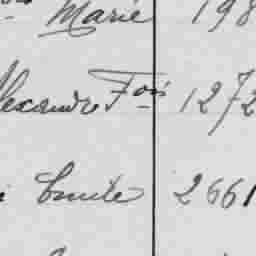 Marie 198
Alexandre Fois 1272
Emile 2661